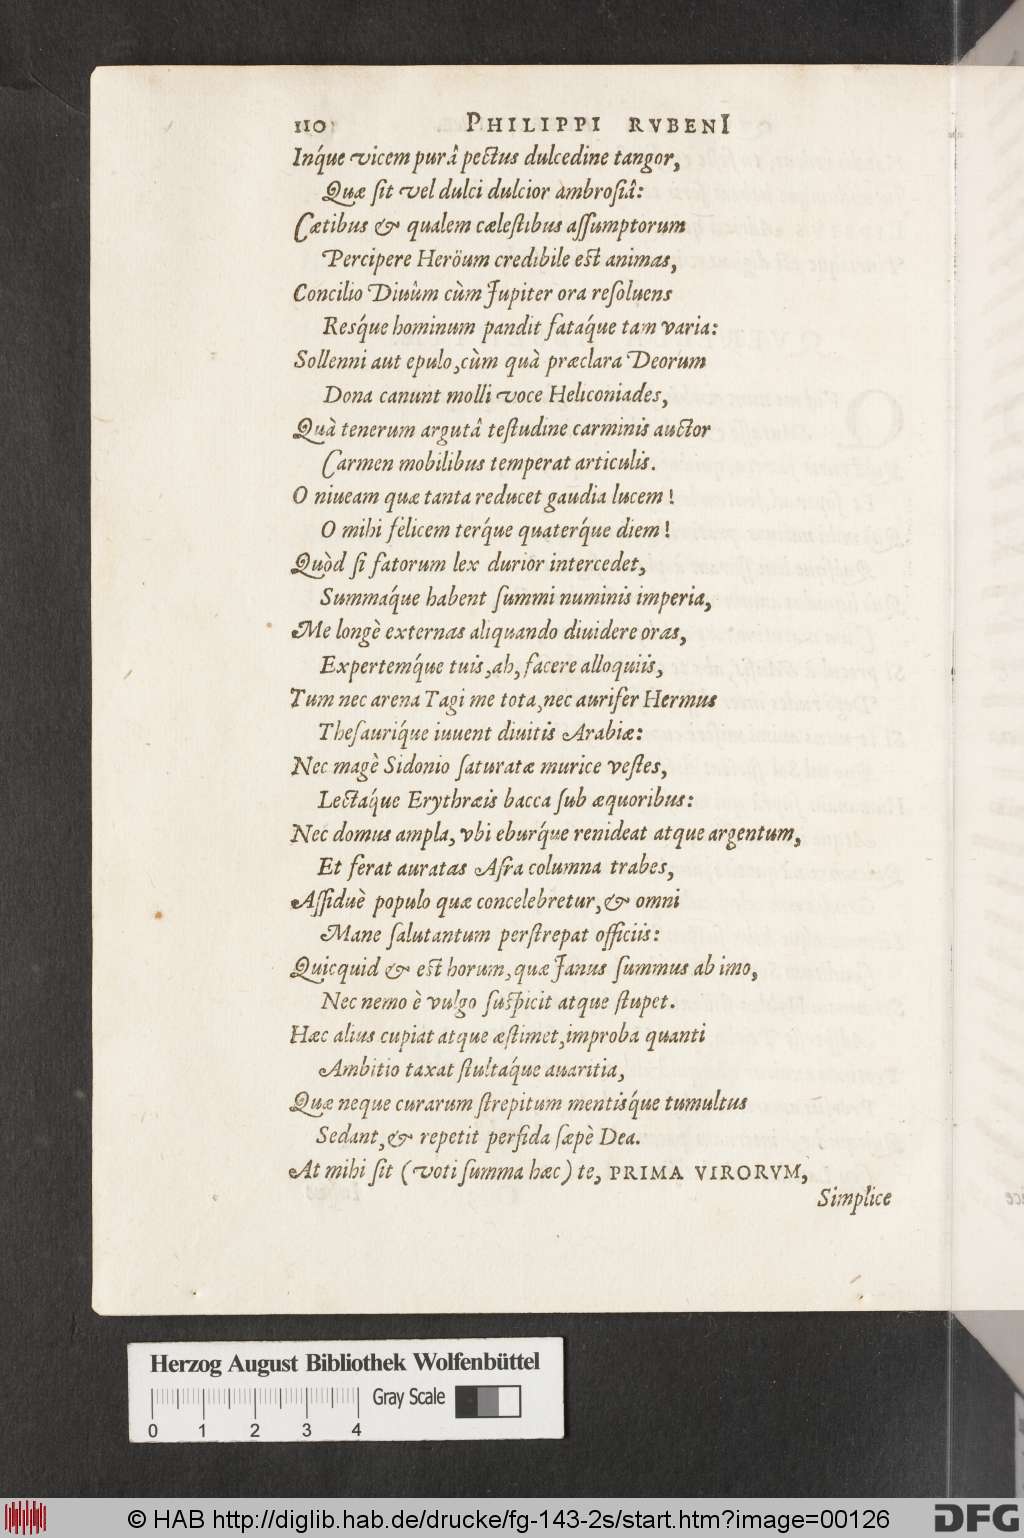 110 PHILIPPI RVBENI
Inq́ue vicem purâ pectus dulcedine tangor,
Quæ sit vel dulci dulcior ambrosiâ:
Cætibus & qualem cælestibus assumptorum
Percipere Heröum credibile est animas,
Concilio Diuûm cùm Jupiter ora resoluens
Resq́ue hominum pandit fataq́ue tam varia:
Sollenni aut epulo, cùm quà præclara Deorum
Dona canunt molli voce Heliconiades,
Quà tenerum argutâ testudine carminis auctor
Carmen mobilibus temperat articulis.
O niueam quæ tanta reducet gaudia lucem!
O mihi felicem terq́ue quaterq́ue diem!
Quòd si fatorum lex durior intercedet,
Summaq́ue habent summi numinis imperia,
Me longè externas aliquando diuidere oras,
Expertemq́ue tuis, ah, facere alloquiis,
Tum nec arena Tagi me tota, nec aurifer Hermus
Thesauriq́ue iuuent diuitis Arabiæ:
Nec magè Sidonio saturatæ murice vestes,
Lectaq́ue Erythræis bacca sub æquoribus:
Nec domus ampla, vbi eburq́ue renideat atque argentum,
Et ferat auratas Afra columna trabes,
Assiduè populo quæ concelebretur, & omni
Mane salutantum perstrepat officiis:
Quicquid & est horum, quæ Janus summus ab imo,
Nec nemo è vulgo suspicit atque stupet.
Hæc alius cupiat atque æstimet, improba quanti
Ambitio taxat stultaq́ue auaritia,
Quæ neque curarum strepitum mentisq́ue tumultus
Sedant, & repetit perfida sæpè Dea.
At mihi sit (voti summa hæc) te, PRIMA VIRORVM,
Simplice
Herzog August Bibliothek Wolfenbüttel
Gray Scale
0 1 2 3 4
© HAB http://diglib.hab.de/drucke/fg-143-2s/start.htm?image=00126
DFG